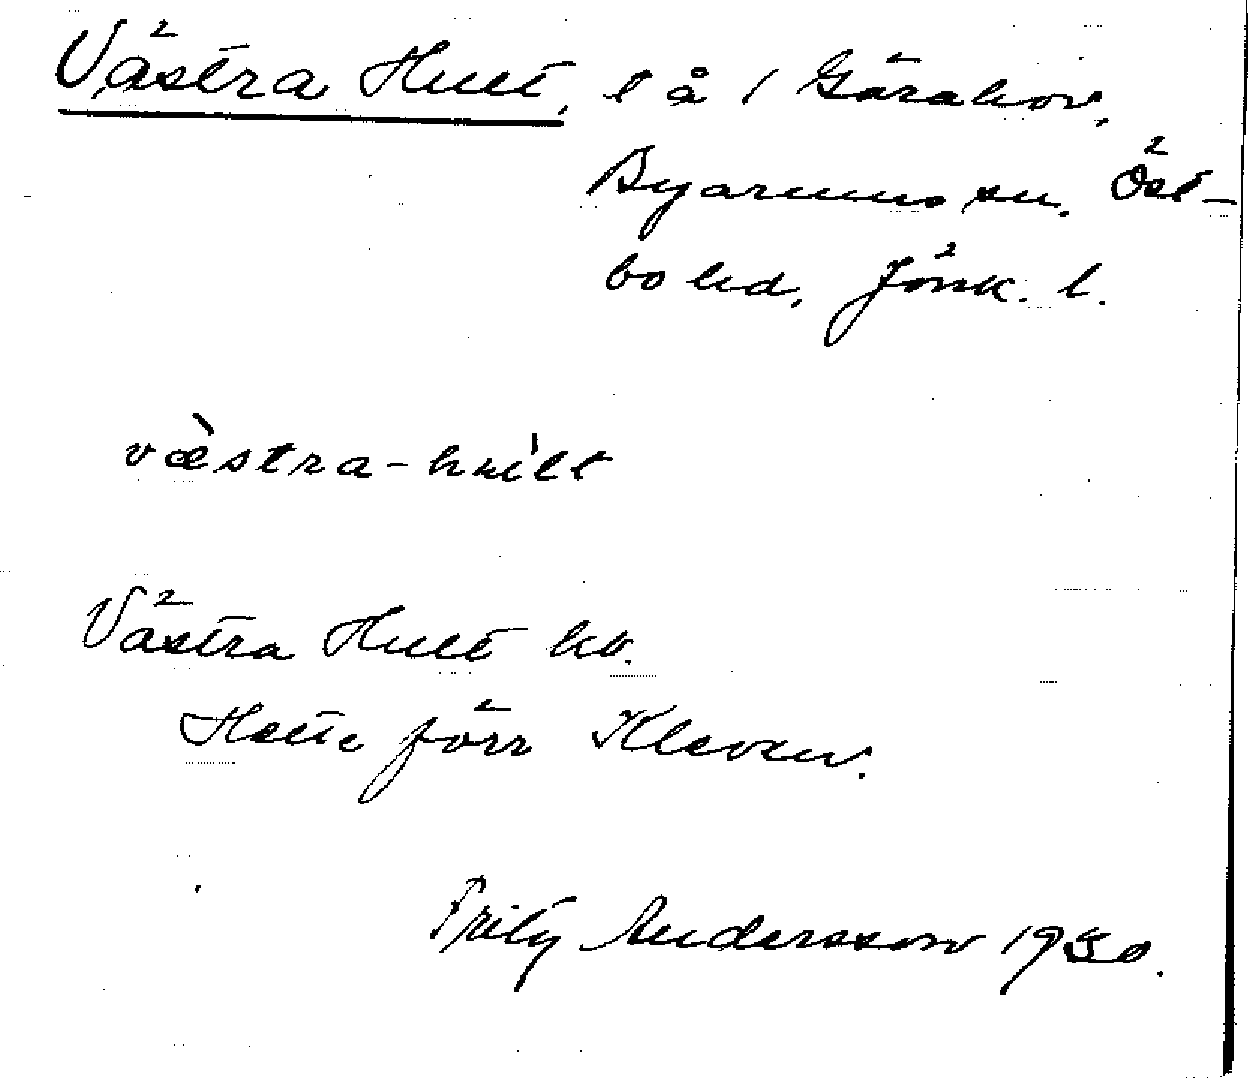 Västra Hult, l å 1 Gärahov,
Byarums sn. Öst-
bo hd, Jönk. l.
væ̀stra-hult
Västra Hult hv.
Hette förr Kleven.
Fritz Andersson 1930.